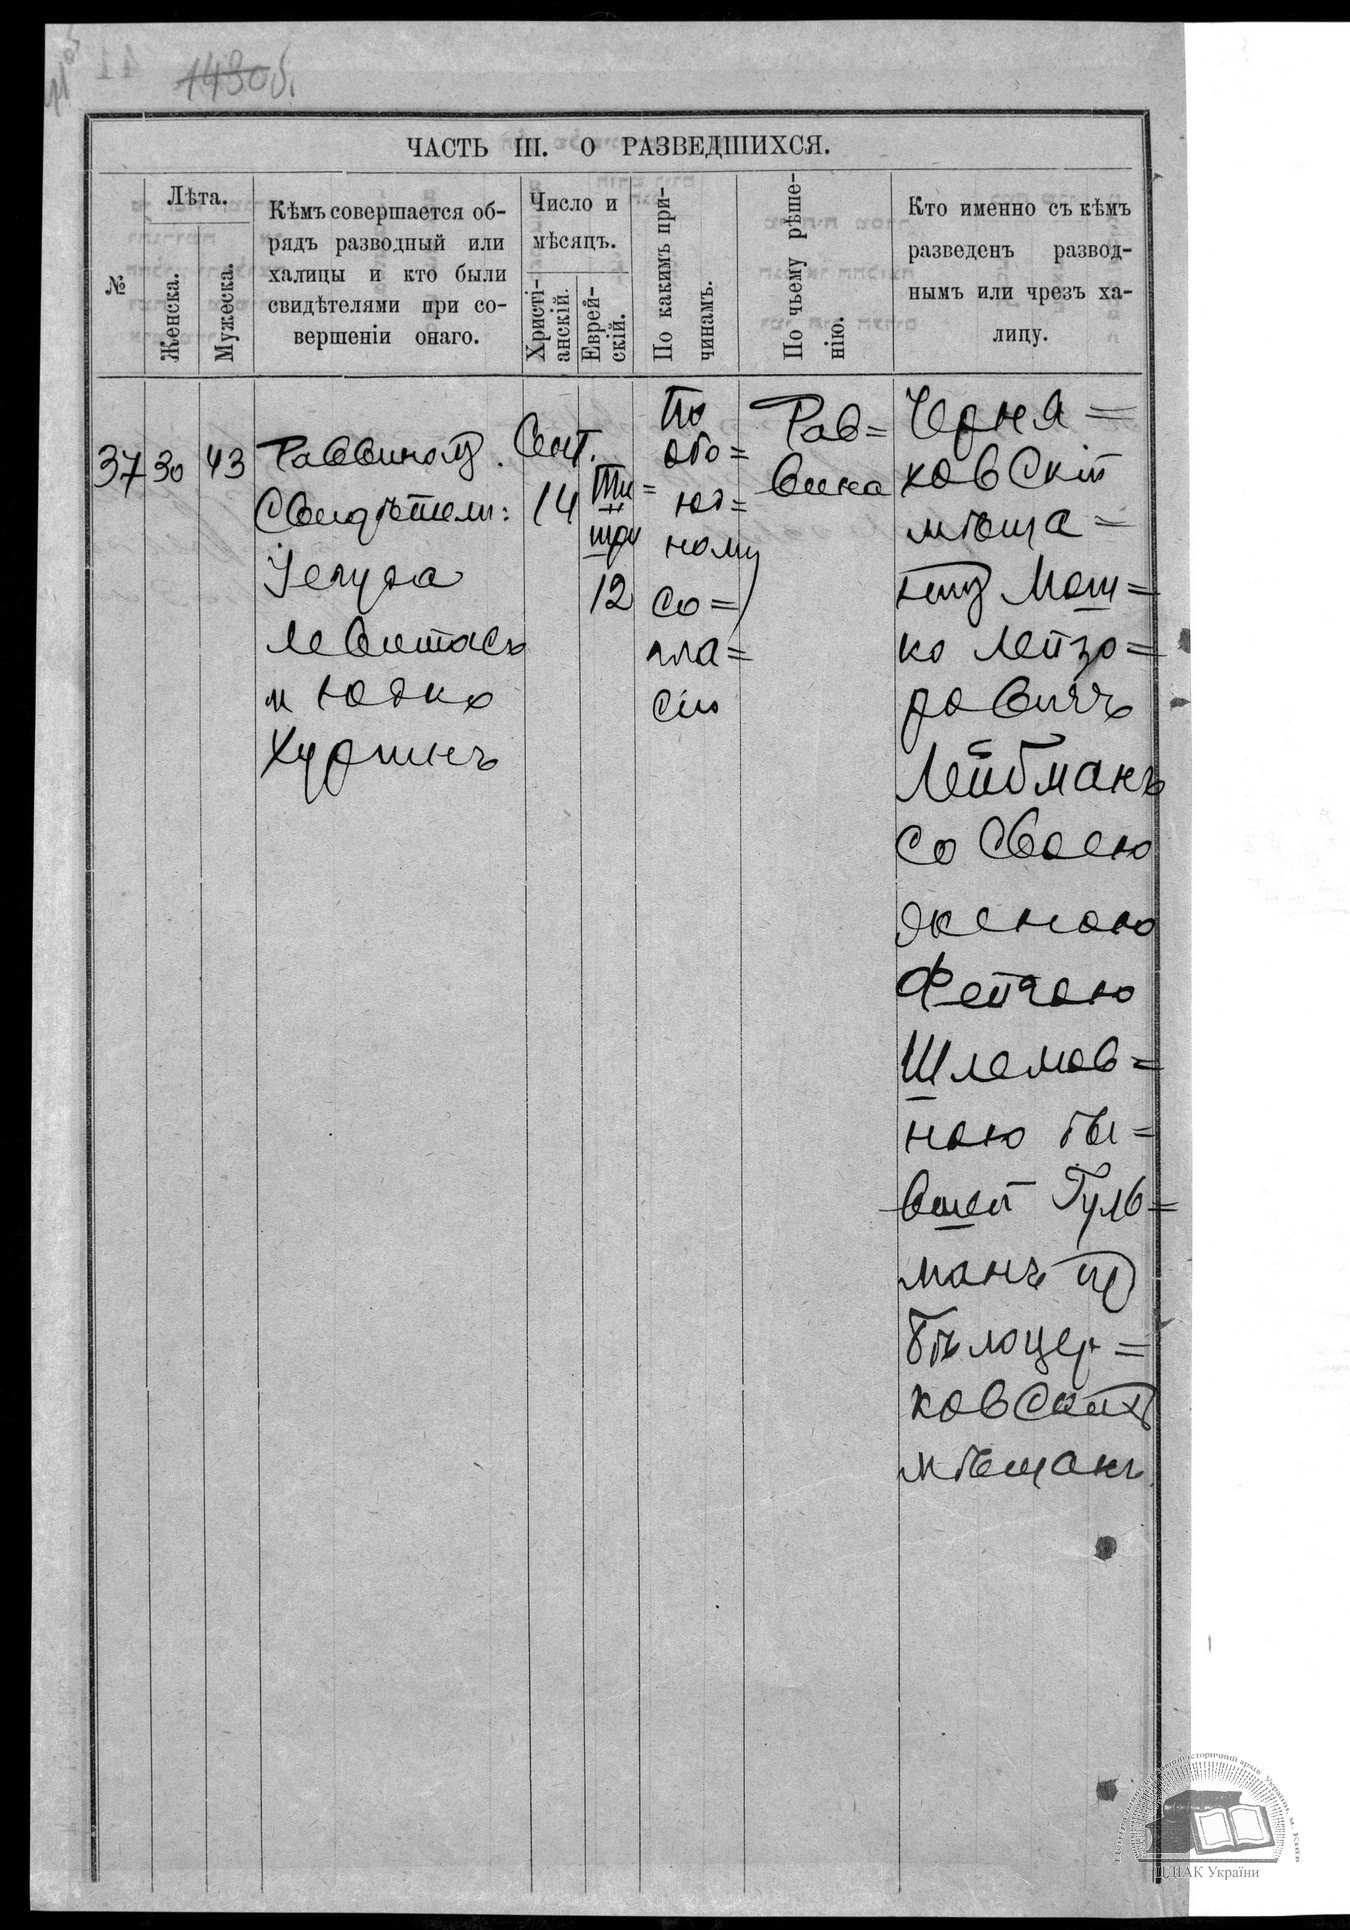 1430 об.
41
ЧАСТЬ III. О РАЗВЕДШИХСЯ.
№
Лѣта.
Женска.
Мужеска.
Кѣмъ совершается об-
рядъ разводный или
халицы и кто были
свидѣтелями при со-
вершеніи онаго.
Число и
мѣсяцъ.
Христі-
анскій.
Еврей-
скій.
По какимъ при-
чинамъ.
По чьему рѣше-
нію.
Кто именно съ кѣмъ
разведенъ развод-
нымъ или чрезъ ха-
лицу.
37
30
43
Раввиномъ.
Свидѣтели:
Левитасъ
и Юдко
Хургинъ
Сент.
14
Ти=
шри
12
По
обо=
юд=
ному
со=
гла=
сію
Рав=
вина
Черня=
ховскій
мѣща=
нинъ Мош=
ко Лейзо=
ровичъ
Лейбманъ
со своею
женою
Фейгою
Шлемов=
ною бы=
вшей Гуль=
манъ изъ
Бѣлоцер=
ковскихъ
мѣщанъ.
ЦДІАК України